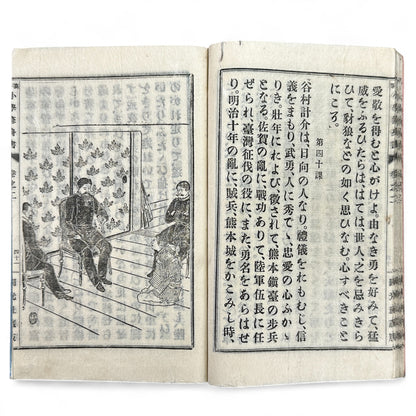 愛敬を得むと心がけよ、由なき勇を好みて、猛
威をふるひたらむは、はては、世の人之を忌みきら
ひて、豺狼などの如く思ひなむ。心すべきこと
にこそ。
第四十課
谷村計介は、日向の人なり。禮儀をおもむじ、信
義をまもり、武勇人に秀でゝ、忠愛の心ふかゝ
りき。壯年におよび、徴されて、熊本鎭臺の歩兵
となる。佐賀の亂に戰功ありて、陸軍伍長に任
ぜられ、臺灣征伐の役に、また勇名をあらはせ
り。明治十年の亂に、賊兵、熊本城をかこみし時、